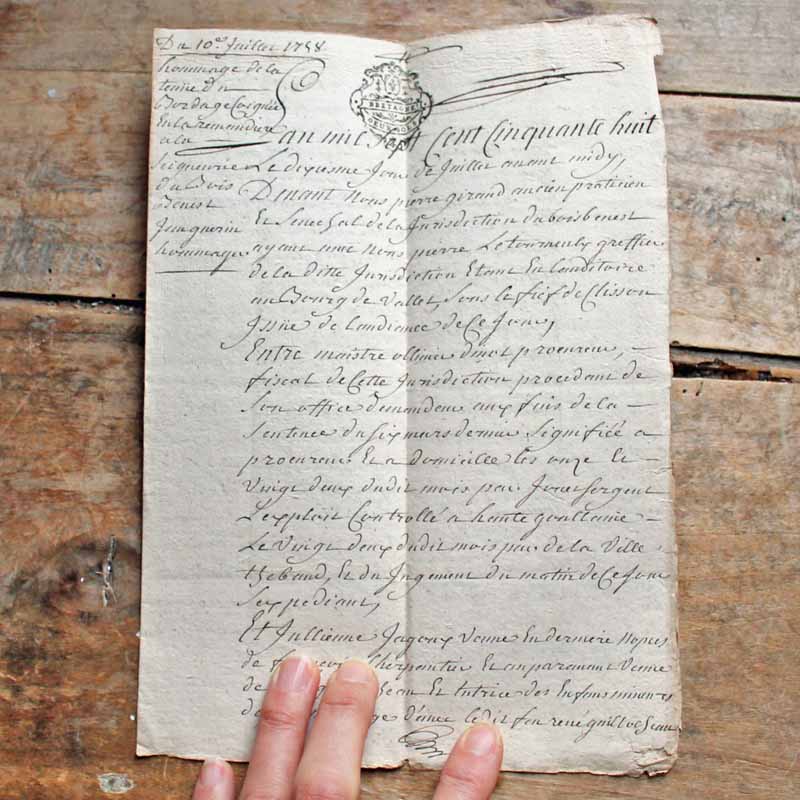 Du 10e Juillet 1758
hommage de la
tenue du
Bordage
En la remondiere
a la
Seigneurie
du Bois
Benest
Jucquerin
hommage
BRETAGNE
DEUX SOLS
L'an mil Sept Cent Cinquante huit
Le dixiesme Jour de Juillet avant midy,
Devant Nous pierre giraud ancien praticien
Et Senechal de la Jurisdiction du bois benest
ayant avec Nous pierre Letourneulx greffier
de la ditte Jurisdiction Etant En L'auditoire
au Bourg de Vallet, Sous le fief de Clisson
Issüe de l'audiance de Ce Jour,
Entre maistre ollivier procureur
fiscal de Cette Jurisdiction procedant de
Son office demandeur aux fins de la
Sentence du Six mars dernier Signifiée a
procureur Et a domicille les onze Et
Vingt deux dudit mois par Sergent
L'exploit Controllé a haute goullaine
Le Vingt deux dudit mois par de la Ville
thebaud, Et du Jugement du matin de Ce Jour
S'expediant,
Et Jullienne Jagoux Veuve En derniere Nopces
de Charpentier Et auparavant Veuve
de Et tutrice des Enfans mineurs
d'avec ledit feu rené